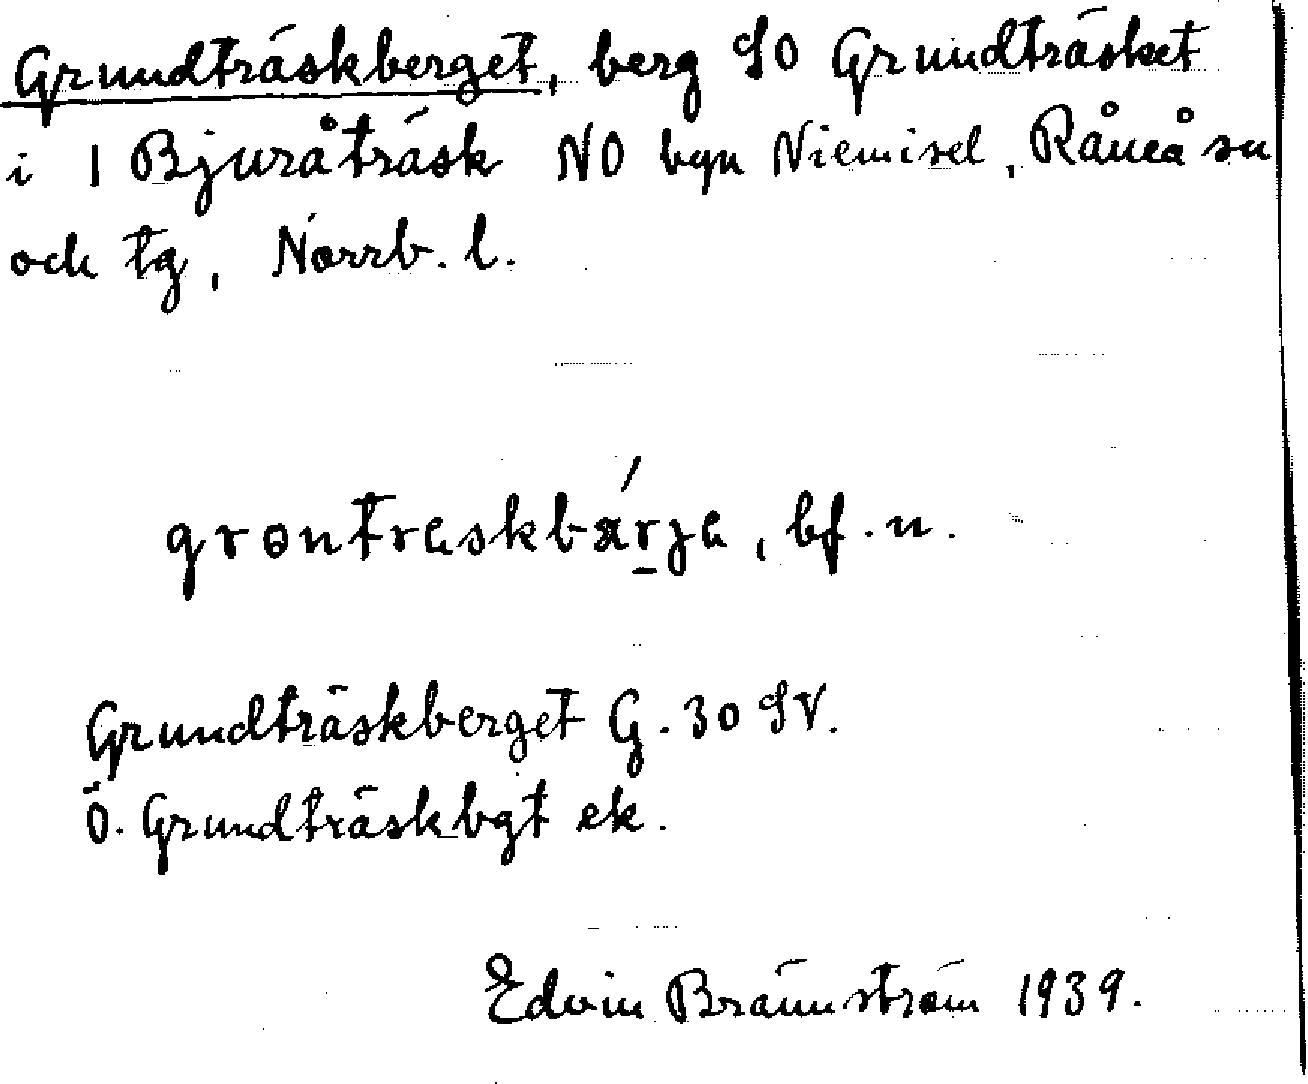 Grundträskberget, berg SO Grundträsket
i 1 Bjuråträsk NO byn Niemisel, Råneå sn
och tg, Norrb. l.
grontraskbä́rja, bf. n.
Grundträskberget G. 30 SV.
Ö. Grundträskbgt ek.
Edvin Brännström 1939.